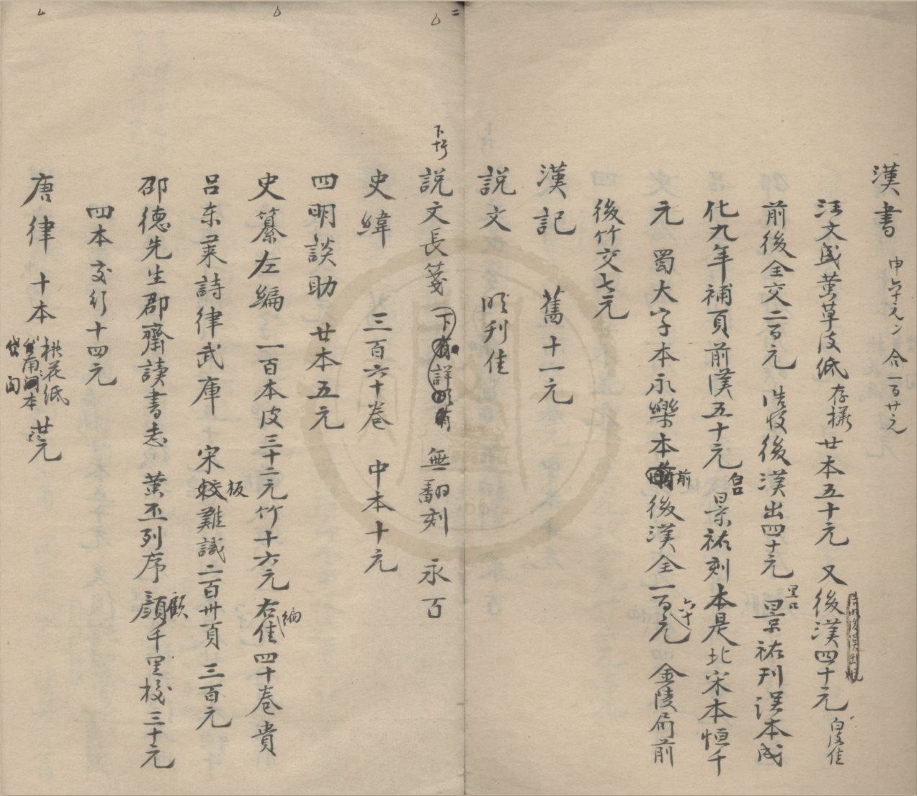 漢書 申六十元 合一百廿元
汪文盛黄草皮紙存樣廿本五十元 又後漢四十元 白皮佳
前後全交二百元 後漢出四十元 黑口景祐刊誤本成
化九年補頁前漢五十元 白口景祐刻本是北宋本恒千
元 蜀大字本永樂本前後漢全一百六十元 金陵局前
後竹交七元
漢記 舊十一元
說文 順刊佳
說文長箋 無翻刻 永百
史緯 三百六十卷 中本十元
四明談助 廿本五元
史纂左編 一百本皮三十二元竹十六元右編佳四十卷貴
呂东萊詩律武庫 宋板較難識二百卅頁 三百元
邵德先生郡齋讀書志 黄丕列序 顧千里校三十元
四本交行十四元
唐律 十本 桃花紙